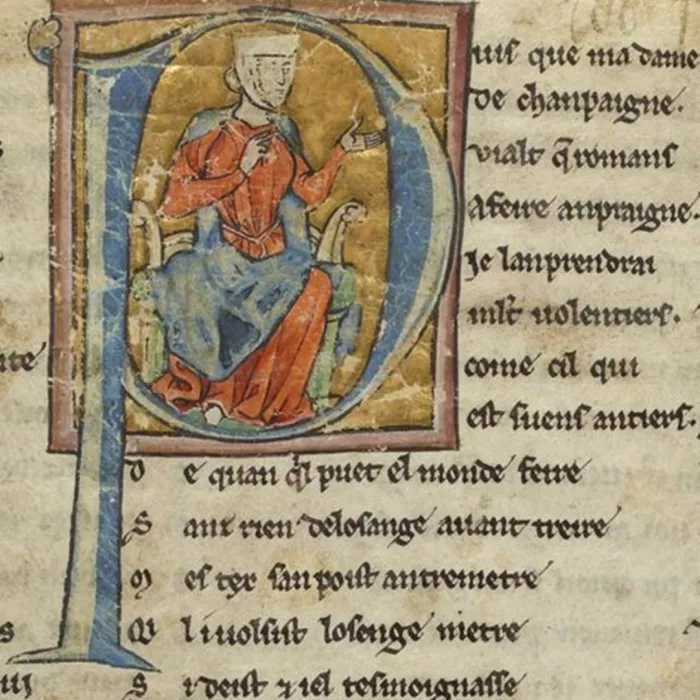 Puis que ma dame
De chanpaigne.
vialt q̃ romans
A feire anpraigne.
Je lanprendrai
mlt̃ uolentiers.
come cil qui
est suens antiers.
D e quan q̃l puet el monde feire
S anz rien delosange auant treire
M es tex san poist antremetre
Q ui uolsist losenge metre
S i deist ⁊ iel tesmoignasse